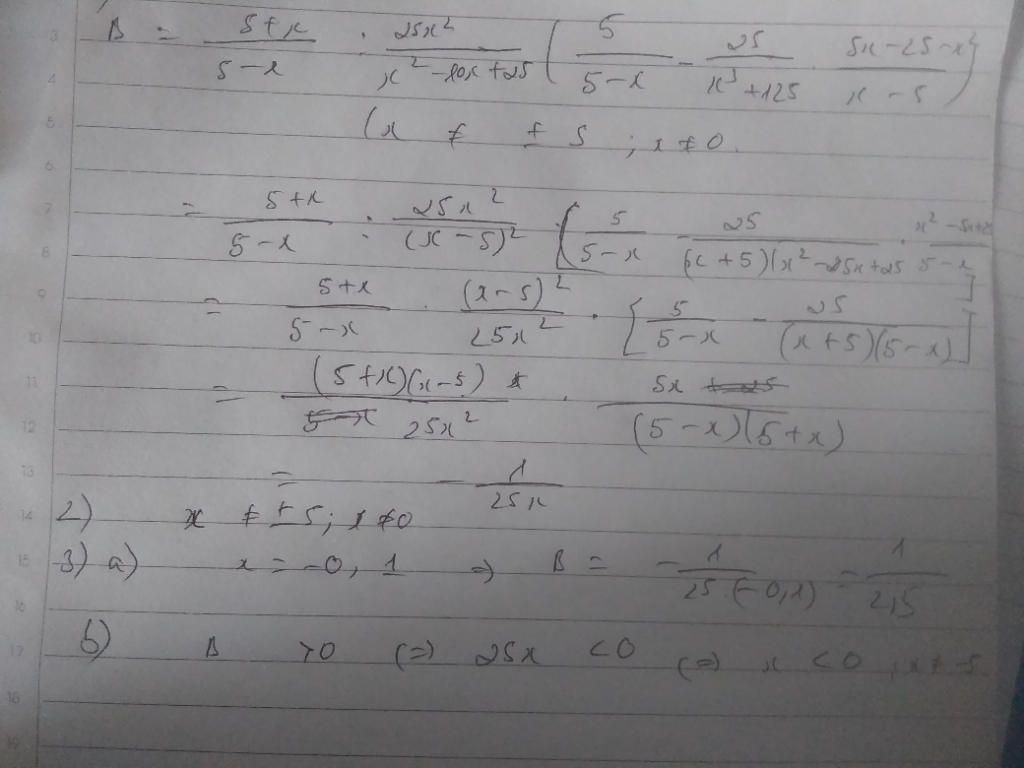 B = \frac{5+x}{5-x} : \frac{25x^2}{x^2-10x+25} \left( \frac{5}{5-x} - \frac{25}{x^3+125} \cdot \frac{5x-25-x^2}{x-5} \right)
(x ≠ ±5 ; x ≠ 0.
= \frac{5+x}{5-x} : \frac{25x^2}{(x-5)^2} \cdot \left[ \frac{5}{5-x} - \frac{25}{(x+5)(x^2-25x+25} \cdot \frac{x^2-5x+25}{5-x} \right]
= \frac{5+x}{5-x} \cdot \frac{(x-5)^2}{25x^2} \cdot \left[ \frac{5}{5-x} - \frac{25}{(x+5)(5-x)} \right]
= \frac{(5+x)(x-5)}{25x^2} \cdot \frac{5x}{(5-x)(5+x)}
= - \frac{1}{25x}
2) x ≠ ±5; x ≠ 0
3) a) x = -0,1 ⇒ B = - \frac{1}{25.(-0,1)} = \frac{1}{2,5}
b) B >0 (=) 25x <0 (=) x <0 , x ≠ -5